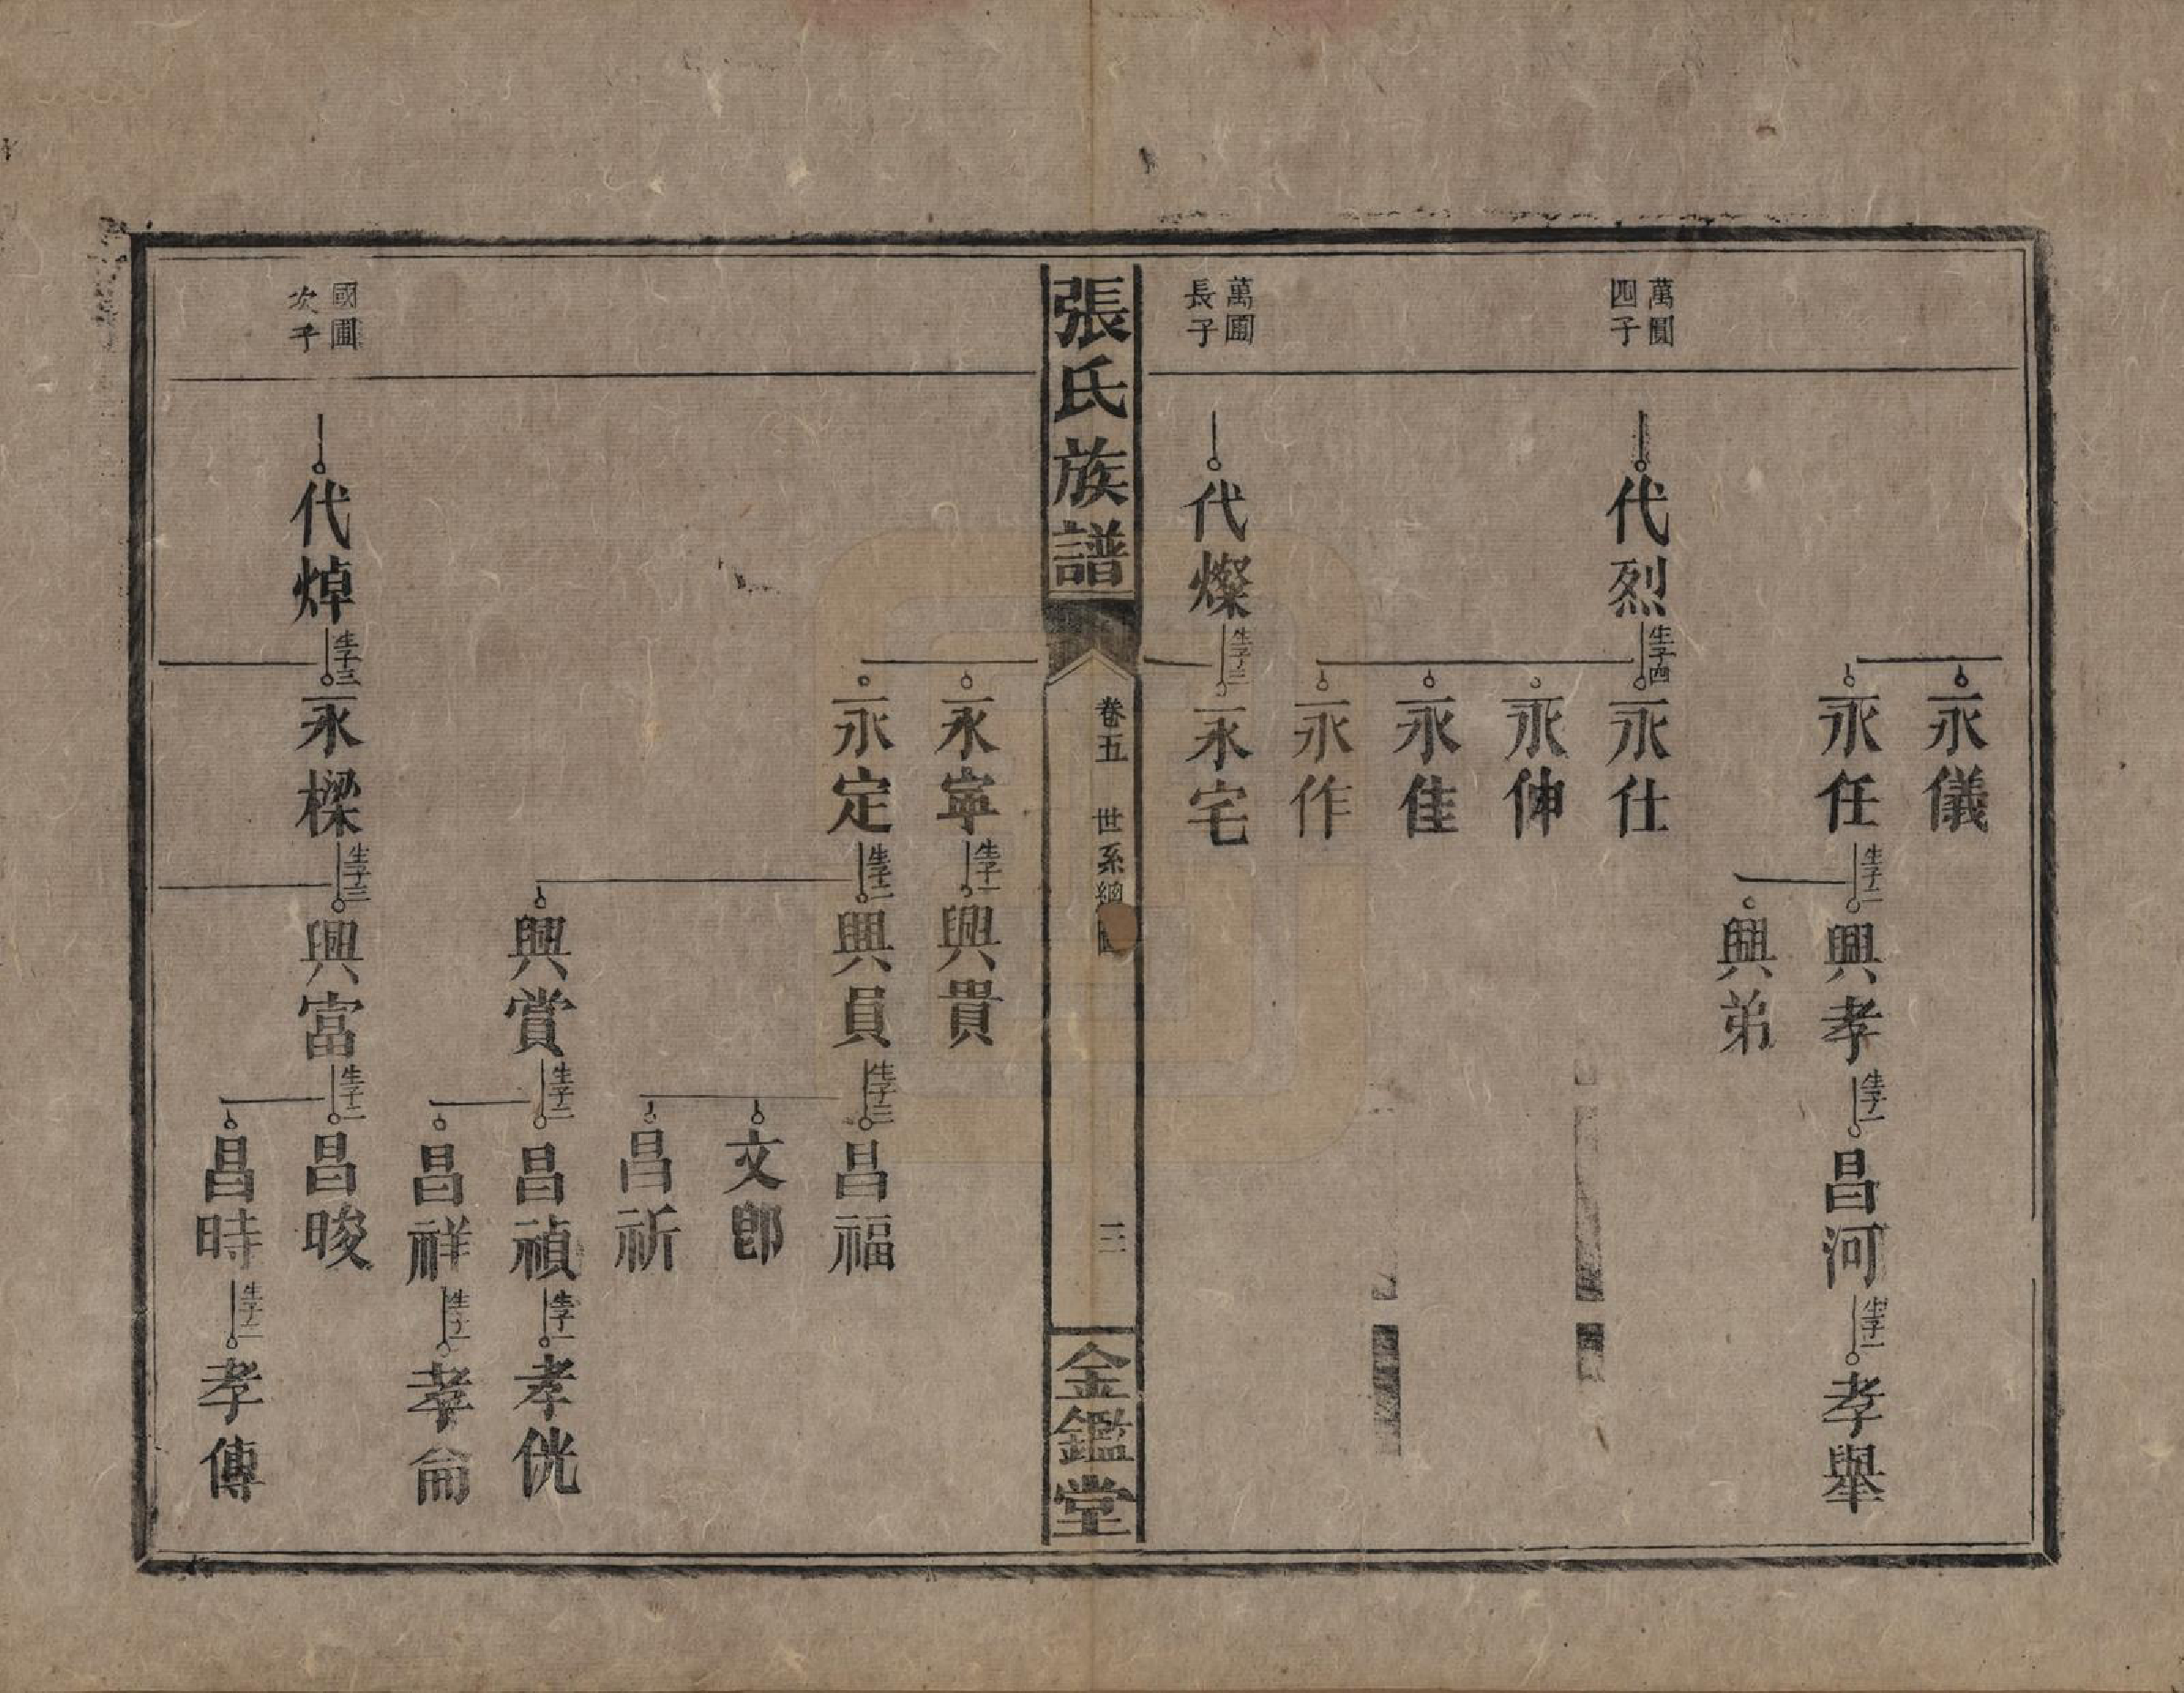 永儀
永任 生子二 興孝 生子一 昌河 生子一 孝舉
興弟
萬圓四子
代烈 生子四 永仕
永伸
永佳
永作
萬圃長子
代燦 生子三 永宅
張氏族譜 卷五 世系總圖 三 金鑑堂
永寧 生子一 興貴
永定 生子二 興員 生子三 昌福
文郎
昌祈
興賞 生子二 昌禎 生子一 孝侊
昌祥 生子一 孝侖
國圃次子
代焯 生子三 永樑 生子三 興富 生子二 昌晙
昌時 生子二 孝傳